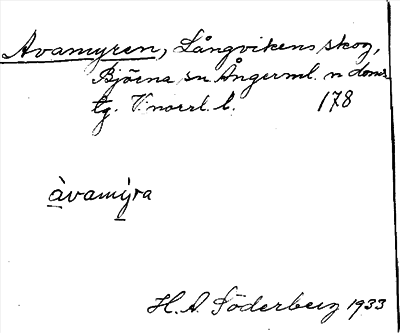 Avamyren, Långvikens skog,
Björna sn Ångerml. n doms
tg. V.norrl. l. 178
àvamy̆ra
H. A. Söderberg 1933